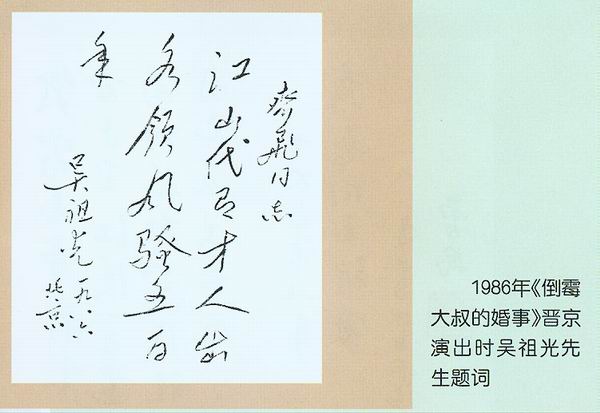 齐飛同志
江山代有才人出
各领风骚五百
年
吴祖光
一九八六
北京
1986年《倒霉
大叔的婚事》晋京
演出时吴祖光先
生题词